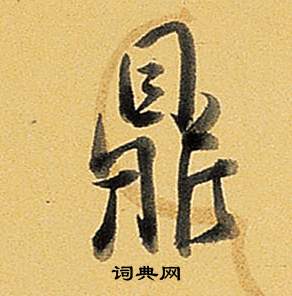 鼎
词典网